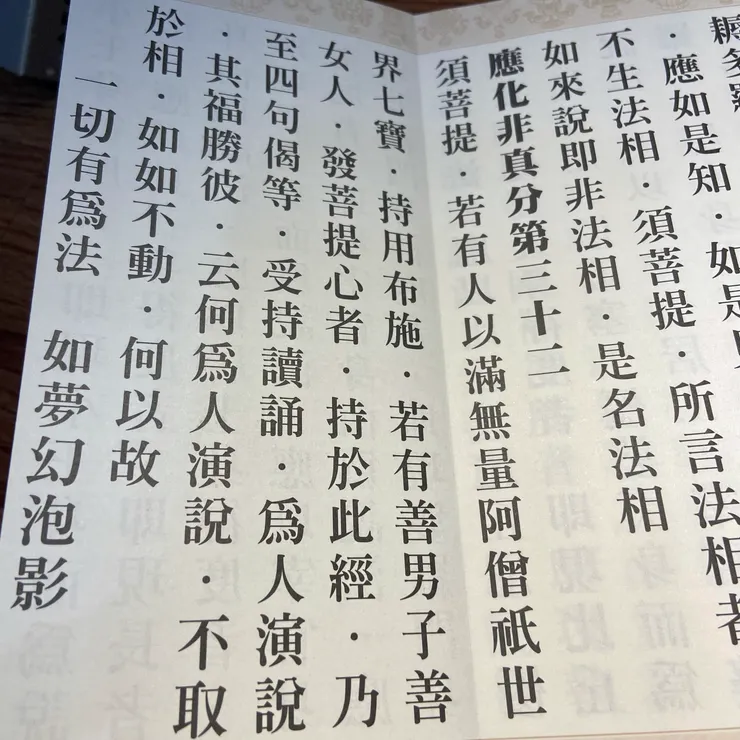 耨多羅
・應如是知・如是
不生法相・須菩提・所言法相者
如來說即非法相・是名法相
應化非真分第三十二
須菩提・若有人以滿無量阿僧祇世
界七寶・持用布施・若有善男子善
女人・發菩提心者・持於此經・乃
至四句偈等・受持讀誦・爲人演說
・其福勝彼・云何爲人演說・不取
於相・如如不動・何以故
一切有爲法 如夢幻泡影